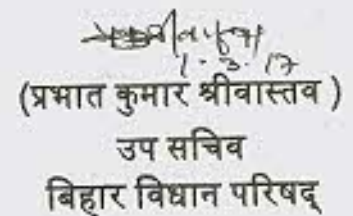 1.3.17
(प्रभात कुमार श्रीवास्तव )
उप सचिव
बिहार विधान परिषद्